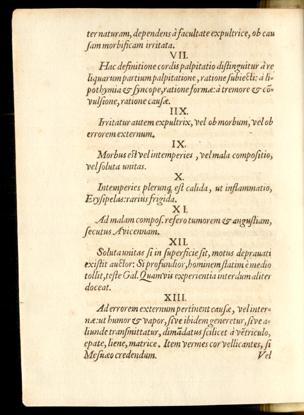 ter naturam, dependens à facultate expultrice, ob cau
sam morbificam irritata.
VII.
Hac definitione cordis palpitatio distinguitur à re
liquarum partium palpitatione, ratione subiecti: à li-
pothymia & syncope, ratione formæ: à tremore & cõ-
vulsione, ratione causæ.
IIX.
Irritatur autem expultrix, vel ob morbum, vel ob
errorem externum.
IX.
Morbus est vel intemperies, vel mala compositio,
vel soluta unitas.
X.
Intemperies plerunq; est calida, ut inflammatio,
Erysipelas: rarius frigida.
XI.
Ad malam compos. refero tumorem & angustiam,
secutus Avicennam.
XII.
Soluta unitas si in superficie sit, motus depravati
existit auctor: Si profundior, hominem statim è medio
tollit, teste Gal. Quamvis experientia interdum aliter
doceat.
XIII.
Ad errorem externum pertinent causæ, vel inter-
næ: ut humor & vapor, sive ibidem generetur, sive a-
liunde transmittatur, dimãdatus scilicet à vẽtriculo,
epate, liene, matrice. Item vermes cor vellicantes, si
Mesuæo credendum.
Vel